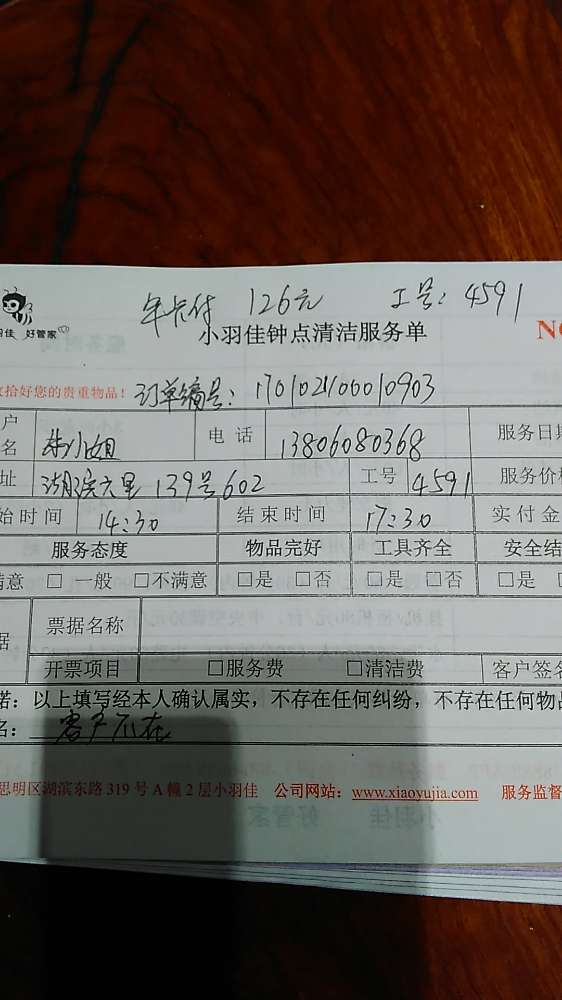 年卡付 126元 工号：4591
羽佳 好管家
小羽佳钟点清洁服务单 NO
拾好您的贵重物品！ 订单编号：170102100010903
户 名 朱小姐 电话 13806080368 服务日期
址 湖滨六里 139号602 工号 4591 服务价
始时间 14:30 结束时间 17:30 实付金
服务态度 物品完好 工具齐全 安全结
满意 □ 一般 □不满意 □是 □否 □是 □否 □是
据 票据名称
开票项目 □服务费 □清洁费 客户签名
诺：以上填写经本人确认属实，不存在任何纠纷，不存在任何物品
名： 客户不在
思明区湖滨东路 319 号 A 幢 2 层小羽佳 公司网站：www.xiaoyujia.com 服务监督